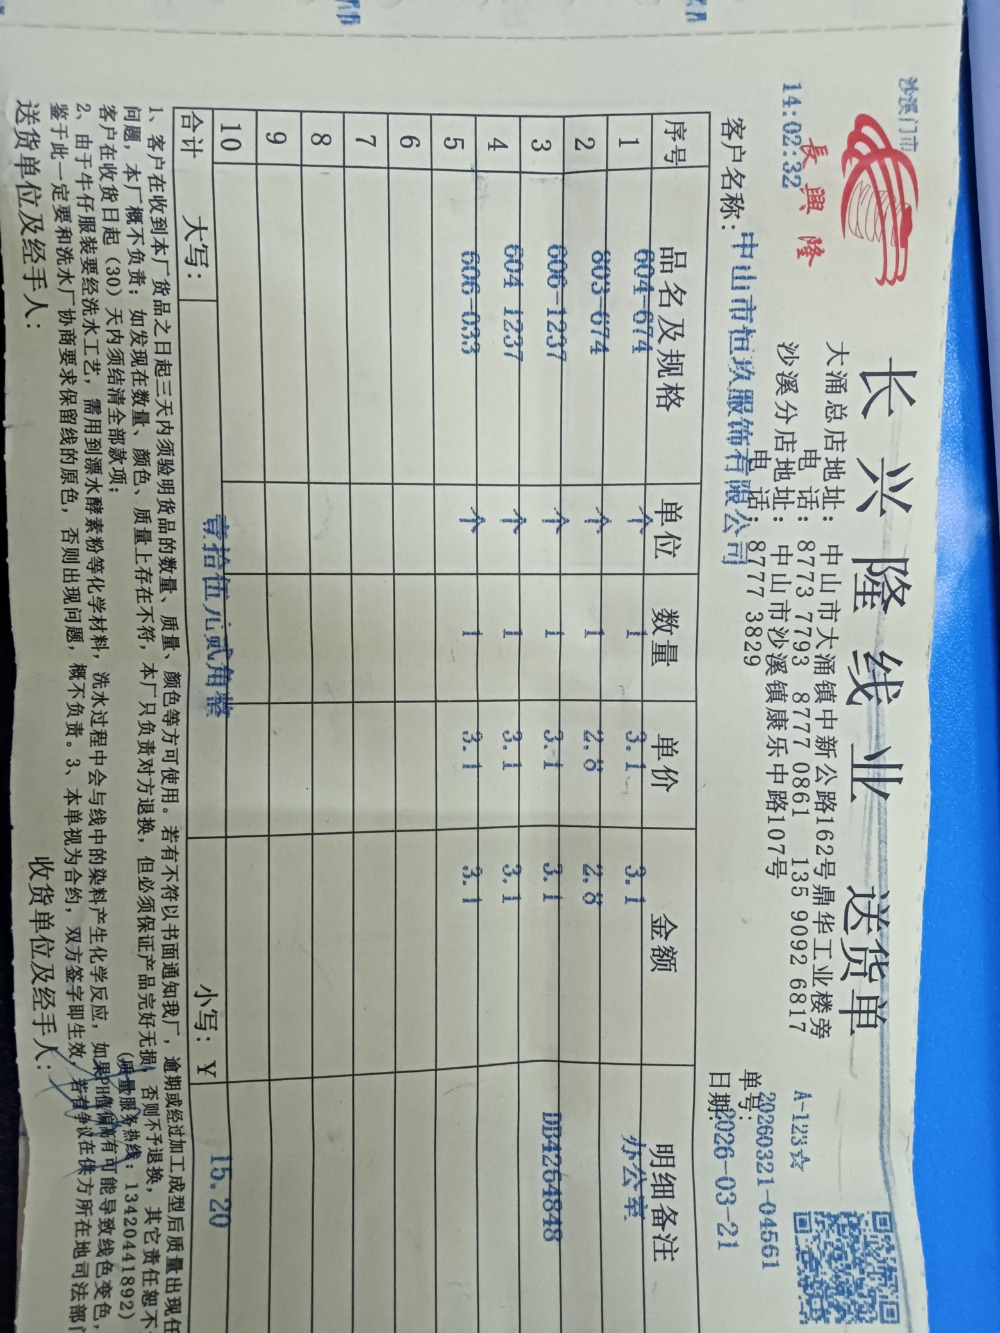 沙溪门市
14:02:32
長興隆
长兴隆线业 送货单
大涌总店地址：中山市大涌镇中新公路162号鼎华工业楼旁
电 话：8773 7793 8777 0861 135 9092 6817
沙溪分店地址：中山市沙溪镇康乐中路107号
电 话：8777 3829
A-123☆
单号：20260321-04561
日期：2026-03-21
客户名称：中山市恒玖服饰有限公司
序号 品名及规格 单位 数量 单价 金额 明细备注
1 604-674 个 1 3.1 3.1 办公室
2 803-674 个 1 2.8 2.8
3 606-1237 个 1 3.1 3.1 DB4264848
4 604-1237 个 1 3.1 3.1
5 606-033 个 1 3.1 3.1
6
7
8
9
10
合计 大写：壹拾伍元贰角整 小写：￥ 15.20
1、客户在收到本厂货品之日起三天内须验明货品的数量、质量、颜色等方可使用。若有不符以书面通知我厂，逾期或经过加工成型后质量出现任
问题，本厂概不负责；如发现在数量、颜色、质量上存在不符，本厂只负责对方退换，但必须保证产品完好无损，否则不予退换，其它责任恕不
客户在收货日起（30）天内须结清全部款项； （质量服务热线：13420441892）
2、由于牛仔服装要经洗水工艺，需用到漂水酵素粉等化学材料，洗水过程中会与线中的染料产生化学反应，如果PH值偏高有可能导致线色变色，
鉴于此一定要和洗水厂协商要求保留线的原色，否则出现问题，概不负责。3、本单视为合约，双方签字即生效，若有争议在供方所在地司法部门
送货单位及经手人： 收货单位及经手人：